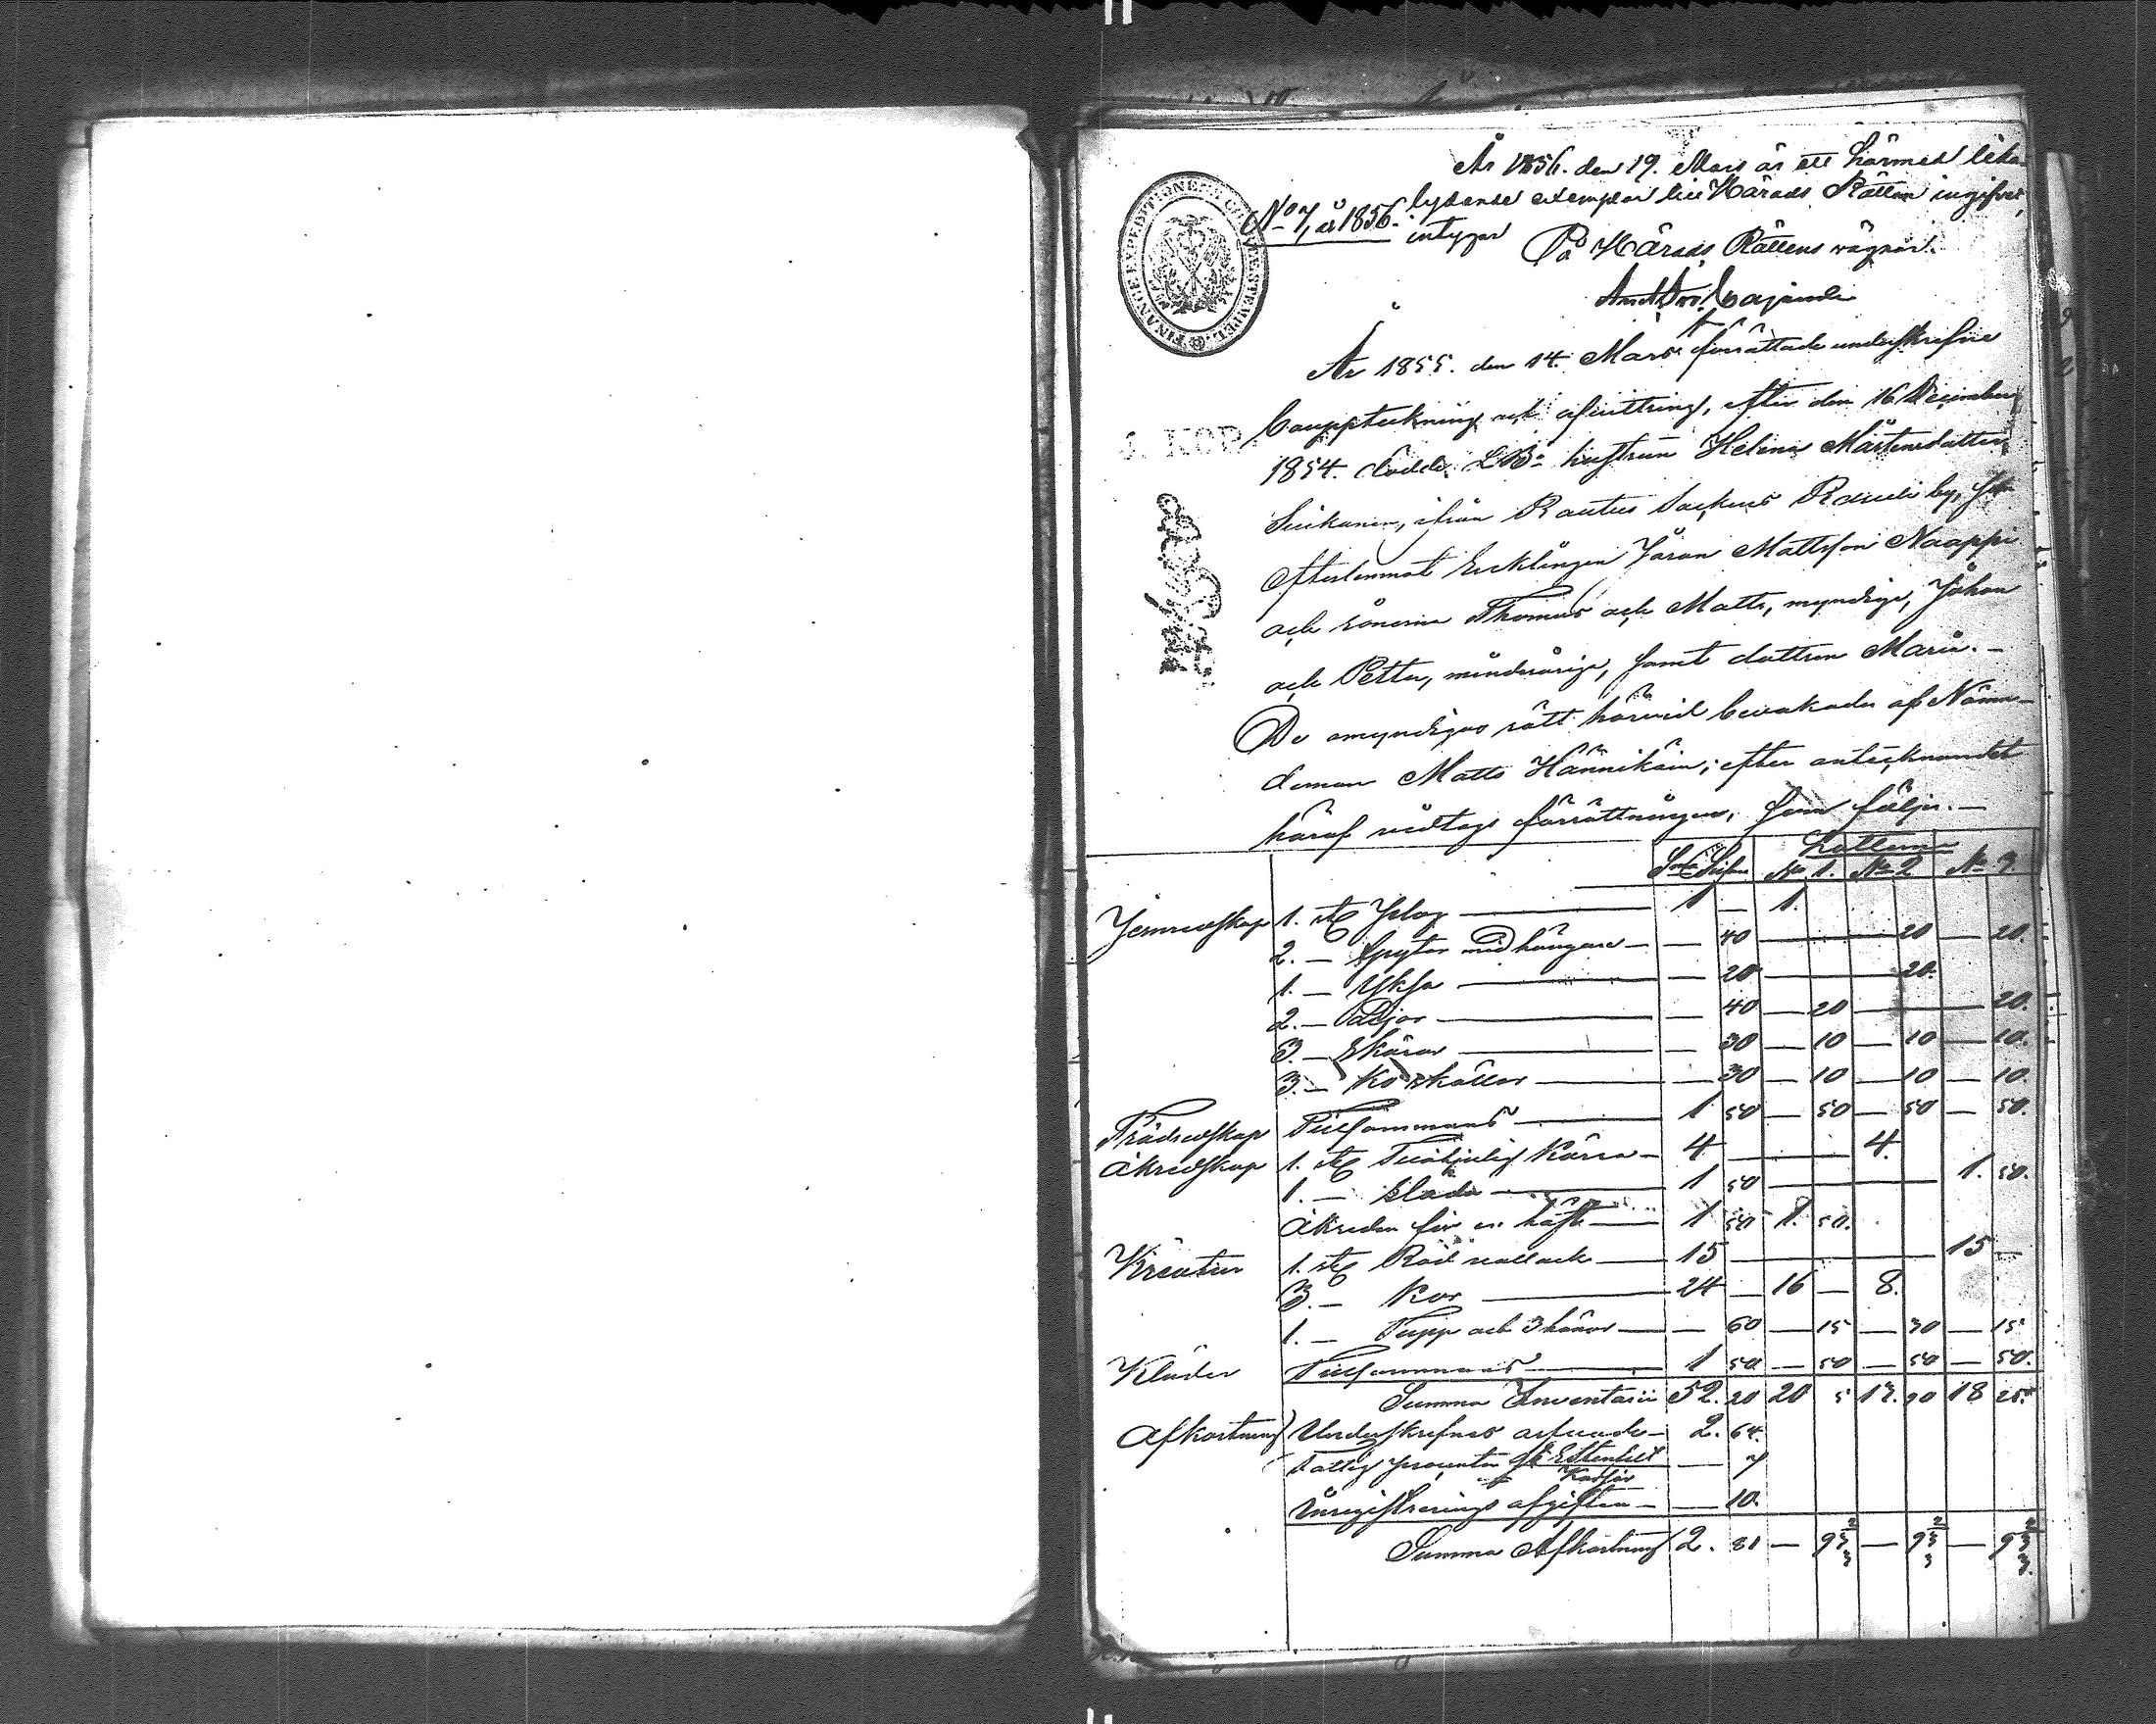 År 1856. den 19. Mars är ett härmed lika-
lydande exemplar till Härads Rätten ingifvet,
No 7, år 1856. intygar På Härads Rättens vägnar.
FINANCE EXPEDITIONENS STEMPEL
År 1855. den 14. Mars förrättade underskrifne
bouppteckning och afvittring, efter den 16 December
5. KOP
1854. döde hustrun Helena Mårtensdotter
ifrån Rautus Sockens by,
efterlemnat Enklingen Jöran Mattsson Naappi
och sönerna Thomas och Matts, myndige, Johan
och Petter, minderårige, samt dottren Maria.-
De omyndigas rätt härvid bevakades af Nämn-
deman Matts Hännikäin; efter antecknandet
häraf vidtogs förrättningen, som följer.-
Lotterne
Silfver No 1. No 2 No 3.
Jernredskap 1. st. Plog — 1 — 1.
2. - Grytor med hängare — — 40 — 20 — 20.
1. - Yksa — — 20 — 20.
2. - Lijor — — 40 — 20 — 20.
3. - Skäror — — 30 — 10 — 10 — 10.
3. - Koskällor — — 30 — 10 — 10 — 10.
Trädredskap Tillsammans — 1 50 — 50 — 50 — 50.
Åkredskap 1. st. Tvåhjulig Kärra — 4 — 4.
1. - Släda — 1 50 — 1. 50.
Åkredon för en häst — 1 50 1. 50.
Kreatur 1. st. Röd vallack — 15 — 15 —
3. - Kor — 24 — 16 — 8.
1. - Tupp och 3 hönor — — 60 — 15 — 30 — 15
Kläder Tillsammans — 1 50 — 50 — 50 — 50.
Summa Inventarii 52. 20 20 5 13. 90 18 25
Afkortning Underskrifnes arfvode — 2. 64.
Fattig procenten — 7
Inregistrerings afgiften — — 10.
Summa Afkortning 2. 81 — 93 2/3 — 93 2/3 — 93 2/3